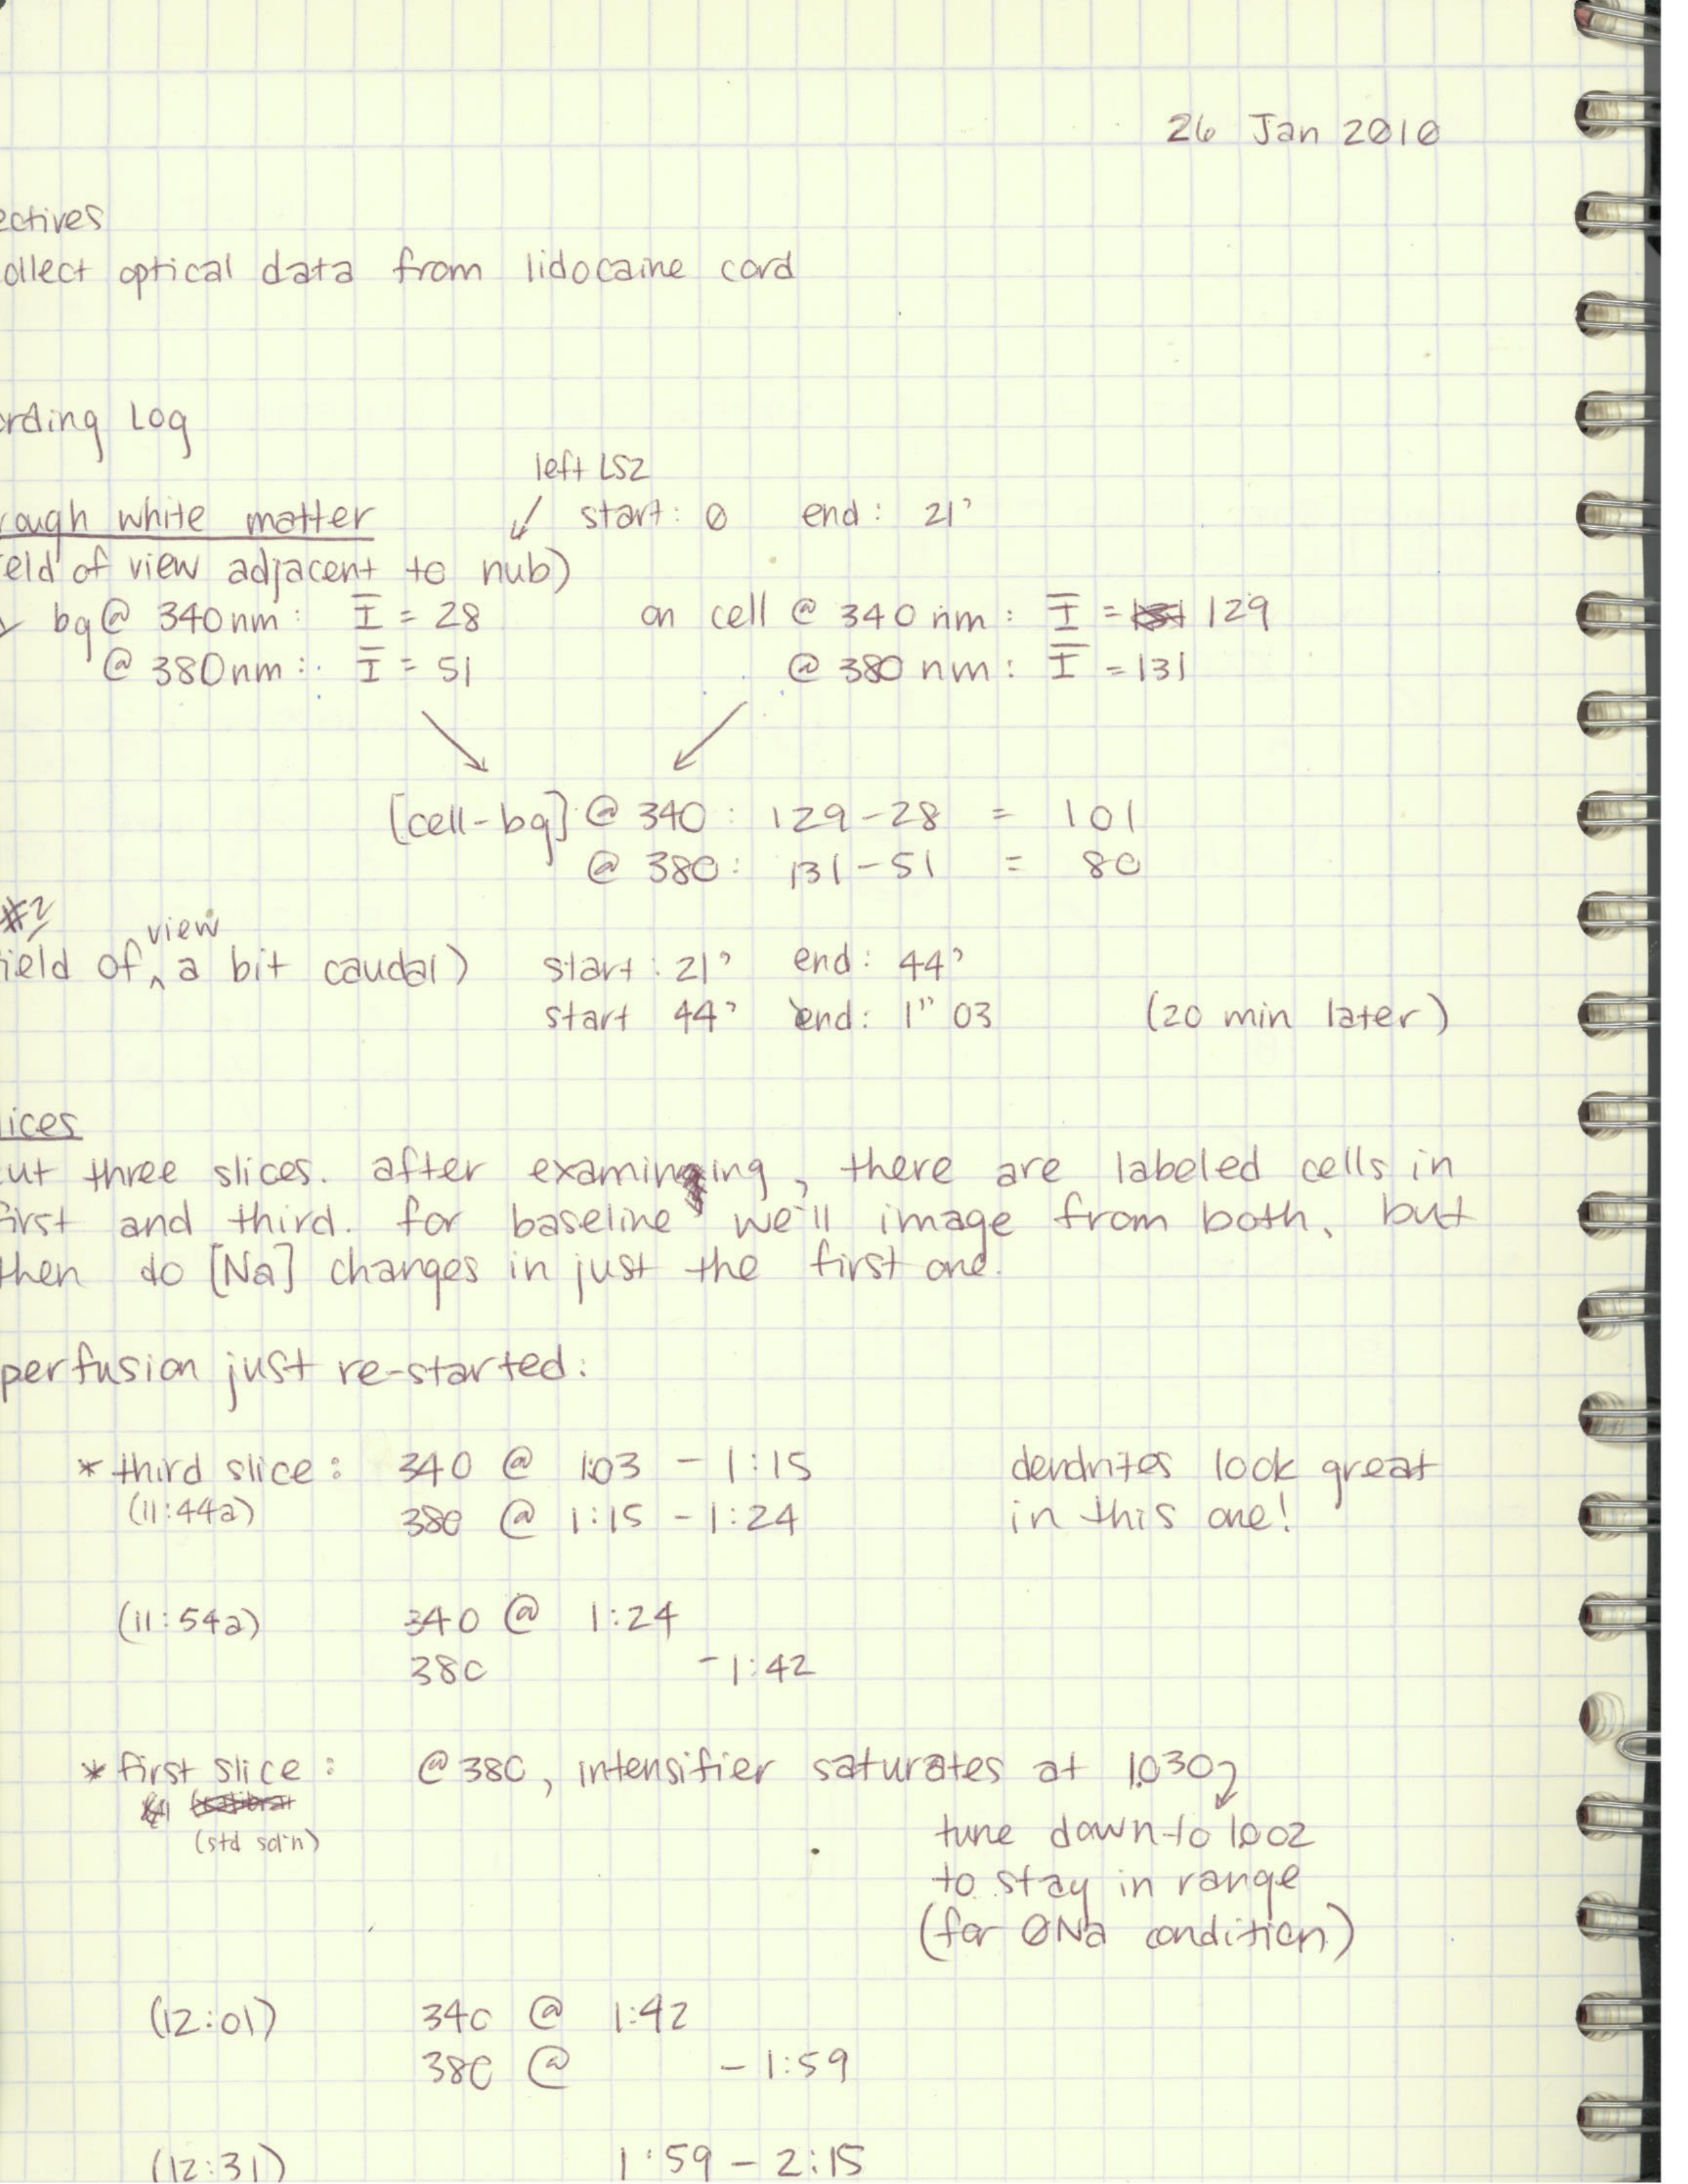 26 Jan 2010
ectives
ollect optical data from lidocaine cord
ording Log
left LS2
rough white matter start: 0 end: 21'
eld of view adjacent to nub)
bg @ 340nm: I = 28 on cell @ 340 nm: I = 129
@ 380nm: I = 51 @ 380 nm: I = 131
[cell-bg] @ 340: 129-28 = 101
@ 380: 131-51 = 80
#2
view
ield of ^ a bit caudal) start: 21' end: 44'
start 44' end: 1" 03 (20 min later)
lices
ut three slices. after examining, there are labeled cells in
first and third. for baseline we'll image from both, but
then do [Na] changes in just the first one.
perfusion just re-started:
* third slice: 340 @ 1:03 - 1:15 dendrites look great
(11:44a) 380 @ 1:15 - 1:24 in this one!
(11:54a) 340 @ 1:24
380 - 1:42
* first slice: @ 380, intensifier saturates at 1.030
(std sol'n) tune down to 1.002
to stay in range
(for 0Na condition)
(12:01) 340 @ 1:42
380 @ - 1:59
(12:31) 1:59 - 2:15